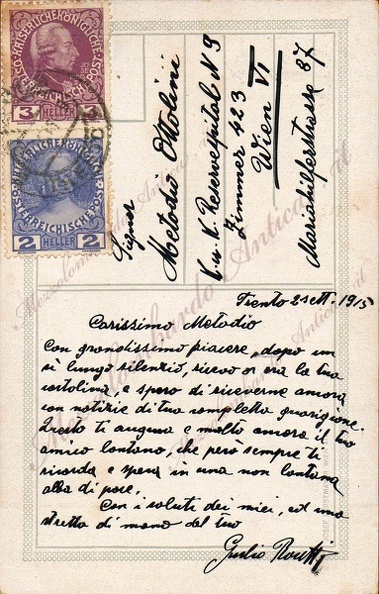 KAISERLICHE KÖNIGLICHE
ÖSTERREICHISCHE POST
3 HELLER 3
KAISERLICHE KÖNIGLICHE
ÖSTERREICHISCHE POST
2 HELLER 2
Signor
Metodio Ottolini
K. u. K. Reservespital N 9
Zimmer 423
Wien VI
Mariahilferstrasse 87
Mezzolombardo Antica.it
Trento 2 sett. 1915
Carissimo Metodio
Con grandissimo piacere, dopo un
sì lungo silenzio, ricevo or ora la tua
cartolina, e spero di riceverne ancora
con notizie di tua completa guarigione.
Questo ti augura e molto ancora il tuo
amico lontano, che però sempre ti
ricorda e spera in una non lontana
alba di pace.
Con i saluti dei miei, ed una
stretta di mano del tuo
Giulio